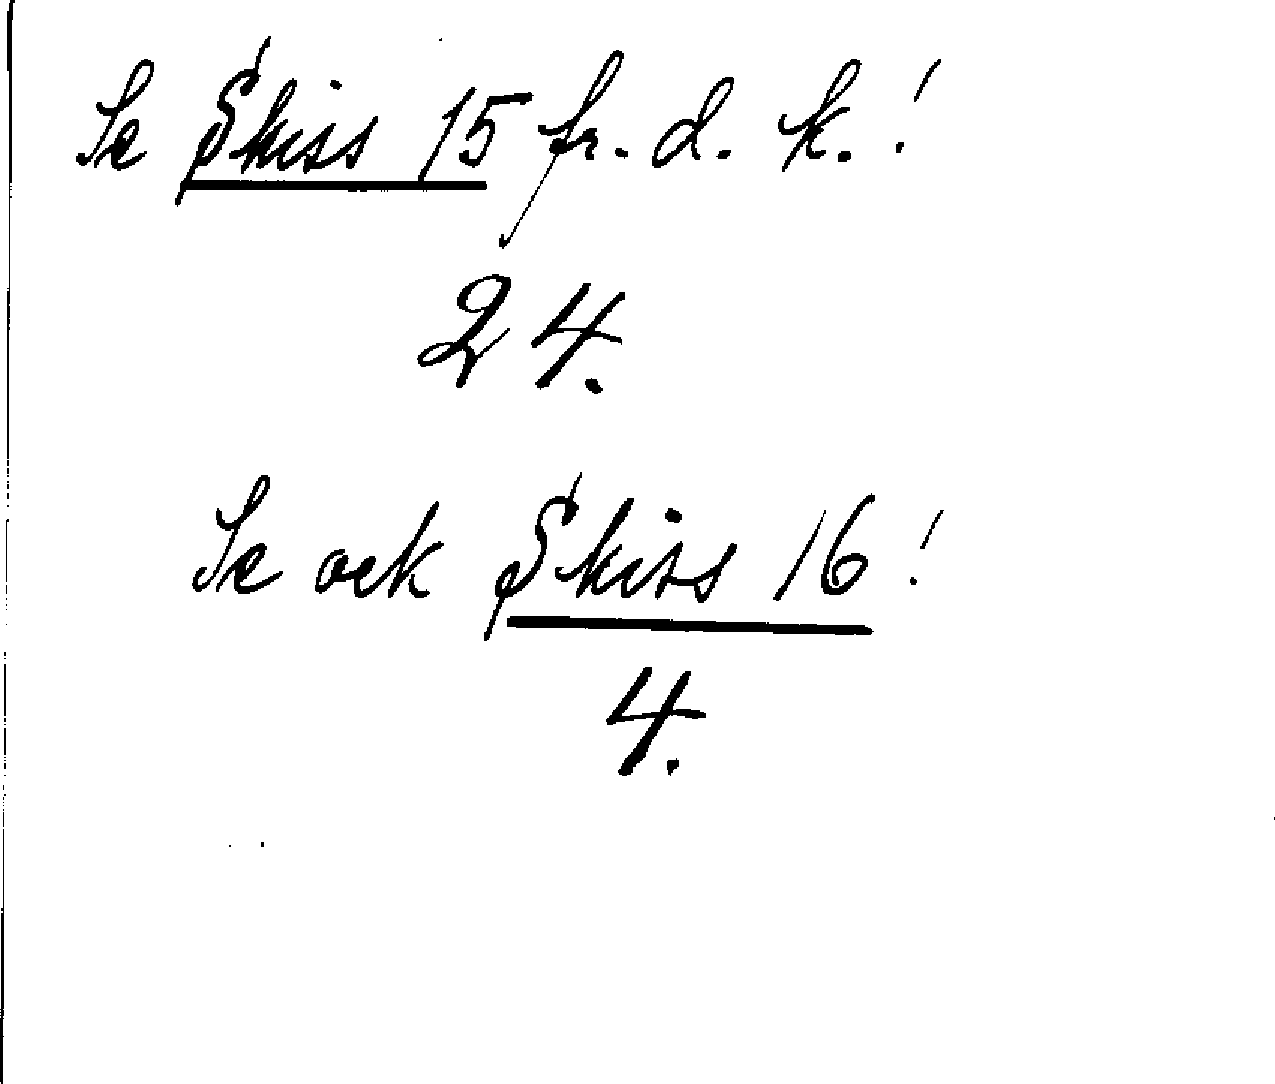 Se Skiss 15 fr. d. k.!
24.
Se ock Skiss 16!
4.